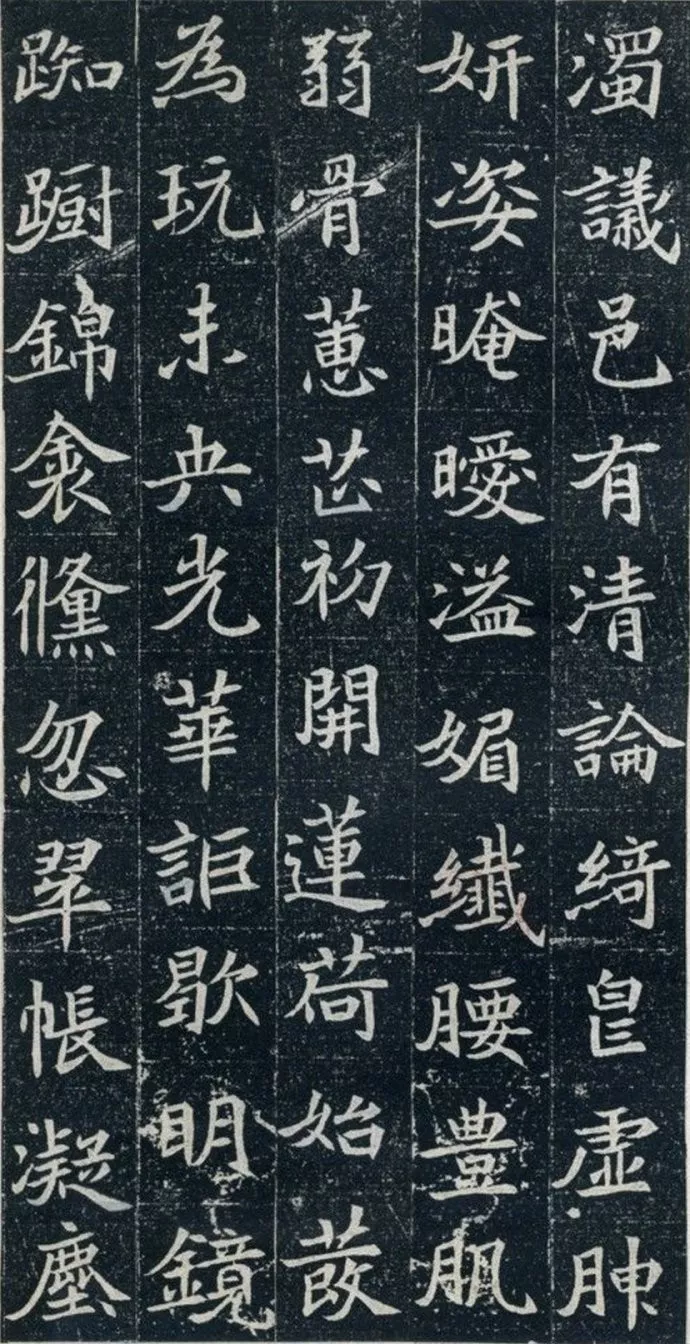 濁議邑有清論綺皀虛胂
妍姿晻曖溢媚纖腰豊肌
弱骨蕙芷初開蓮荷始蕟
為玩未央光華詎歇明鏡
踟蹰錦衾儵忽翠帳凝塵